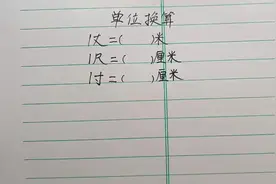 单位换算
1丈=( )米
1尺=( )厘米
1寸=( )厘米